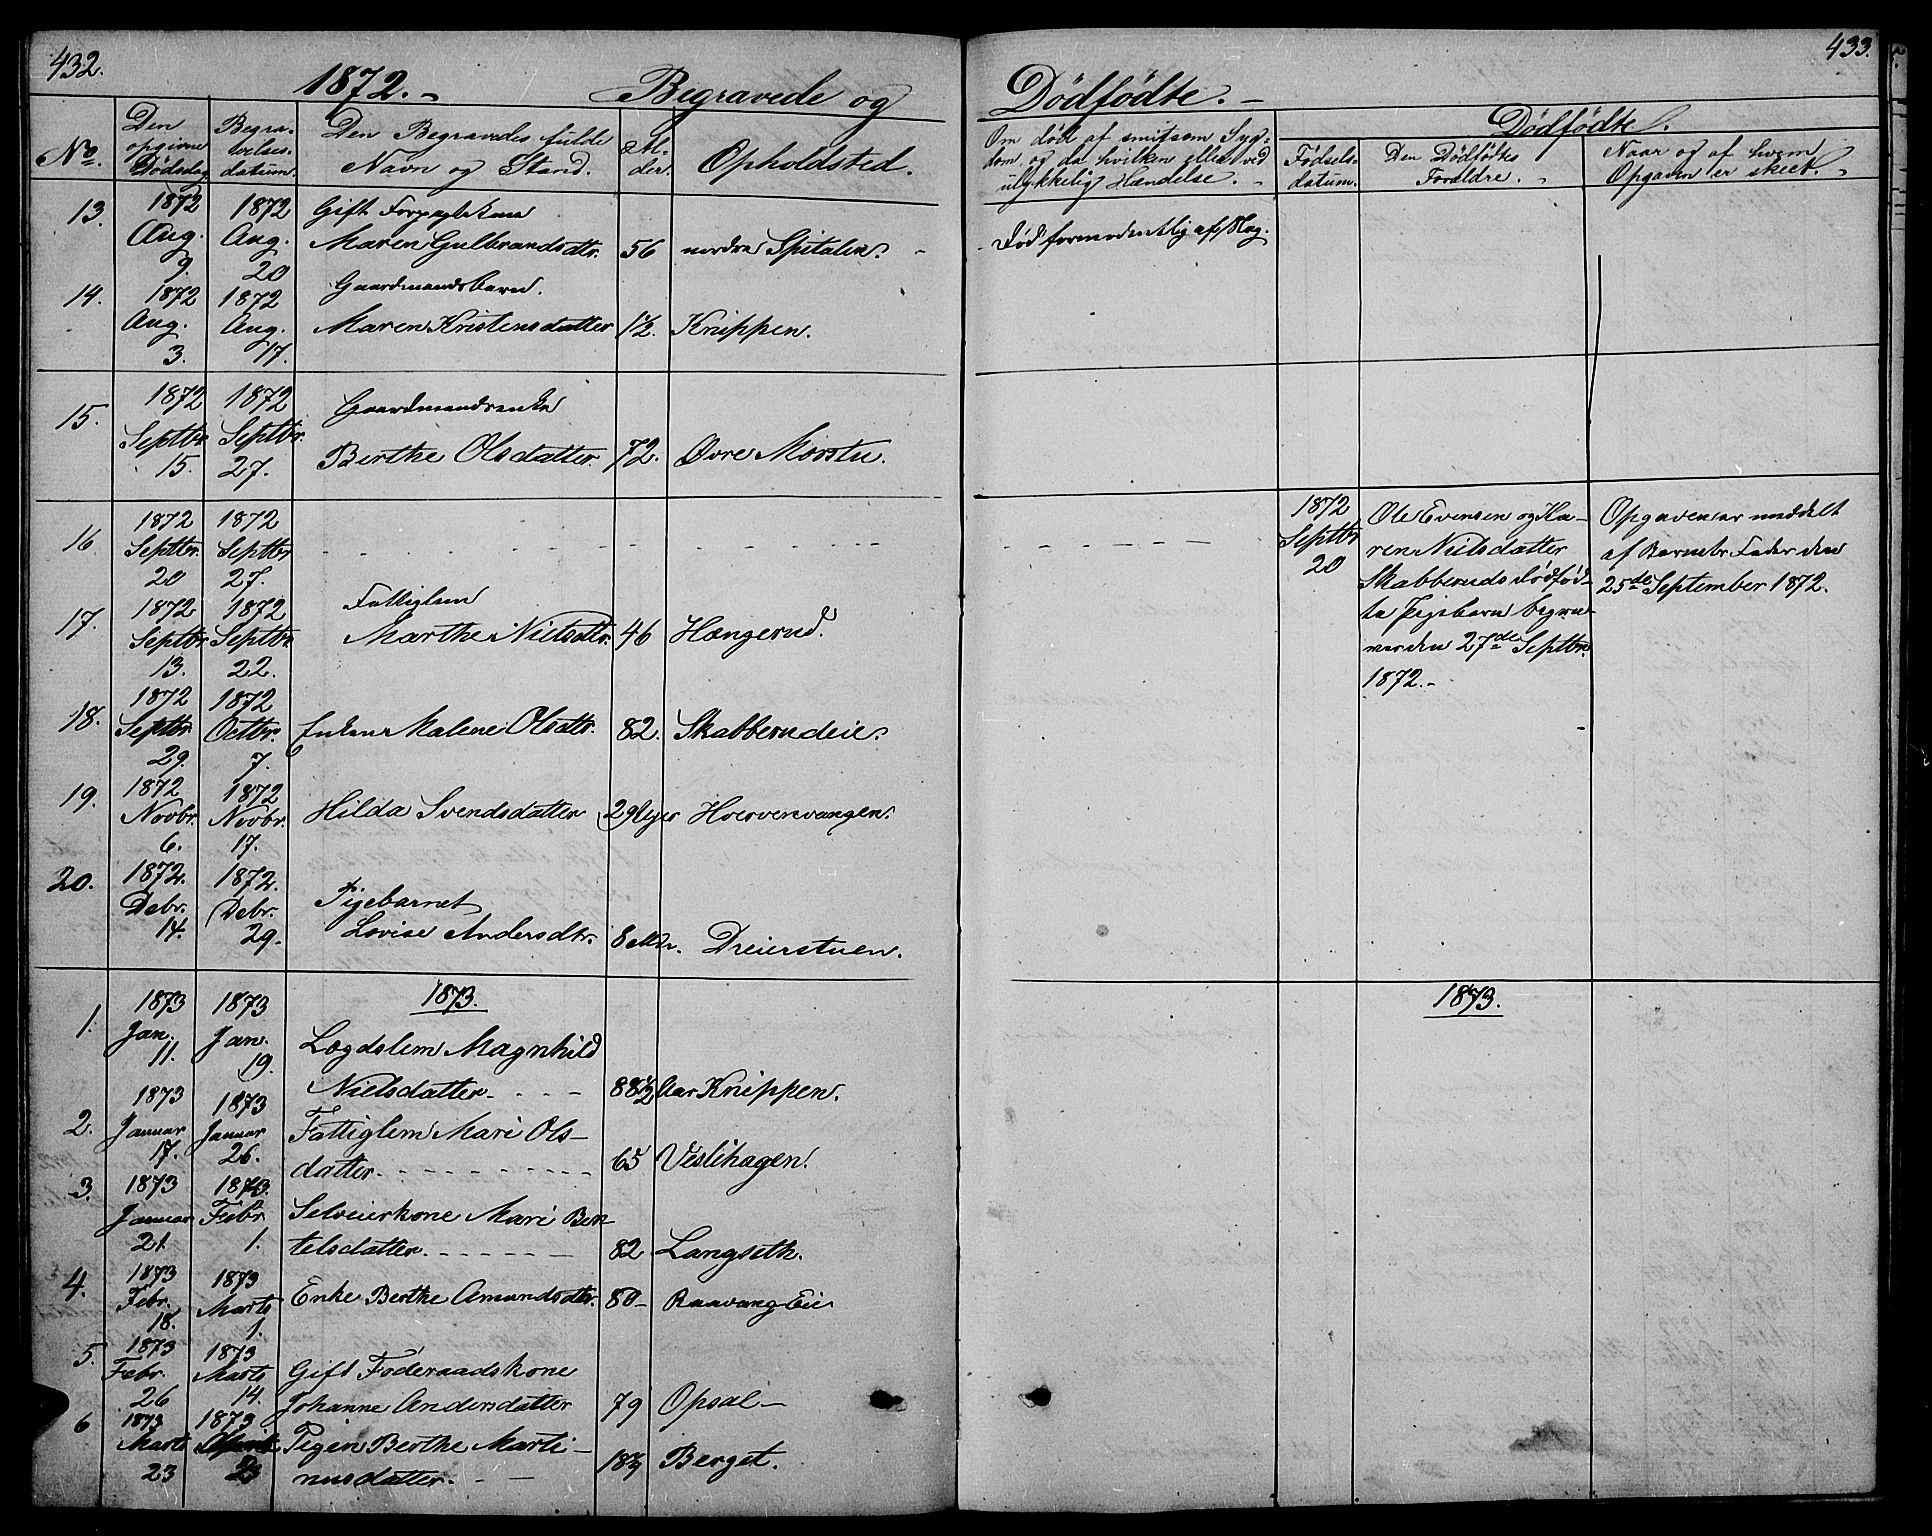 432.
1872.-
Begravede og
No.
Den opgivne Dødsdag
Begravelsesdatum.
Den Begravedes fulde Navn og Stand.
Alder.
Opholdsted.
13. 1872 Aug. 9. 1872 Aug. 20
Gift
Maren Gulbrandsdtr. 56 nordre Spitalen. -
14. 1872 Aug. 3. 1872 Aug. 17.
Gaardmandsbarn.
Maren Kristensdatter 1½. Knippen.
15. 1872 Septbr. 15. 1872 Septbr. 27.
Gaardmandsenke
Berthe Olsdatter. 72. Øvre Morstu.
16. 1872 Septbr. 20 1872 Septbr 27.
17. 1872 Septbr 13. 1872 Septbr. 22.
Fattiglem
Marthe Nielsdtr. 46 Hængerud.
18. 1872 Septbr. 29. 1872 Octbr. 7.
Enken Malene Olsdtr. 82. Skabberudeie.
19. 1872 Novbr. 6. 1872 Novbr. 17.
Hilda Svendsdatter 29 Uger Hvervenvangen.
20. 1872. Debr. 14. 1872. Debr. 29.
Pigebarnet
Lovise Andersdtr. 8 Mdr. Dreierstuen.
1873.
1. 1873 Jan. 11. 1873 Jan. 19.
Lægdslem Magnhild
Nielsdatter. 88½ Aar Knippen.
2. 1873 Januar 17. 1873 Januar 26.
Fattiglem Mari Ols-
datter. 65 Veslihagen.
3. 1873 Januar 21. 1873. Febr. 1.
Selveierkone Mari Ben-
telsdatter. 82 Langseth.
4. 1873 Febr. 18. 1873 Marts 1.
Enke Berthe Amundsdtr. 80- Raavang Eie
5. 1873 Febr. 26 1873 Marts 14.
Gift Føderaadskone
Johanne Andersdatter 79 Opsal-
6 1873 Marts 23 1873
Pigen Berthe Marti-
nusdatter. Berget.
433.
Dødfødte.-
Om død af smitsom Syg-
dom, og da hvilken eller ved
ulykkelig Hændelse. -
Dødfødte.
Fødsels-
datum.
Den Dødfødtes
Forældre. -
Naar og af hvem
Opgaven er skeet. -
Død formodentlig af Slag.
1872
Septbr
20
Ole Evensen og Ka-
ren Nielsdatter
Skabberuds dødfød-
te Pigebarn begra-
ves den 27de Septbr.
1872.-
Opgaven er meddelt
af Barnets Fader den
25de September 1872.
1873.